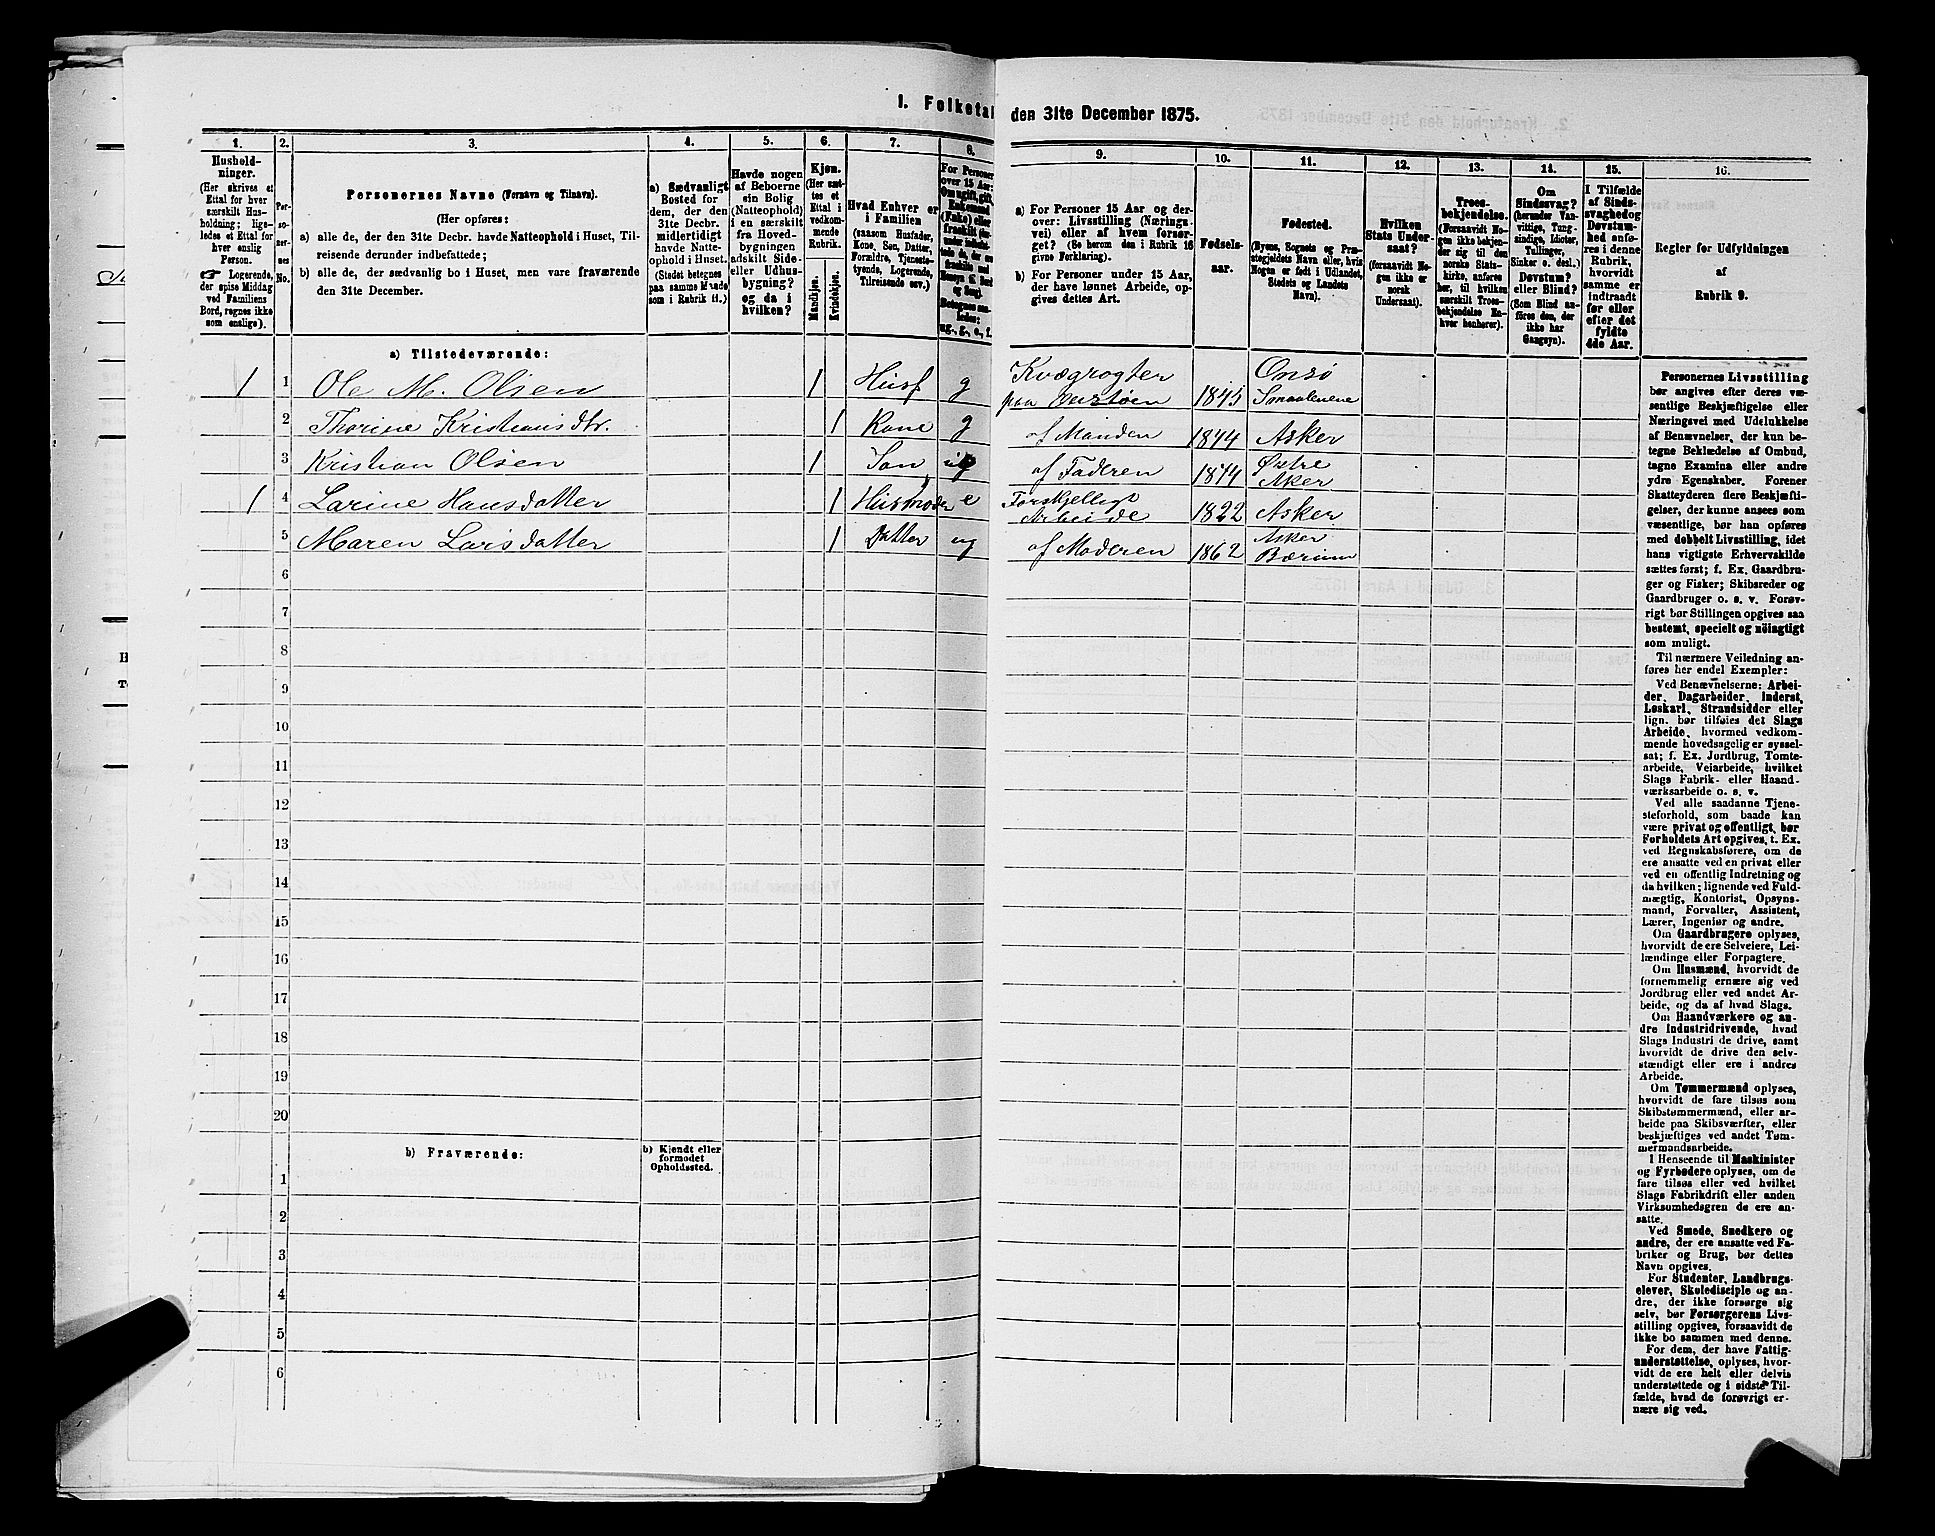 1. Folketal den 31te December 1875.
1.
2.
3.
4.
5.
6.
7.
8.
9.
10.
11.
12.
13.
14.
15.
16.
Hushold-
ninger.
(Her skrives et
Ettal for hver
særskilt Hus-
holdning; lige-
ledes et Ettal for
hver enslig
Person.
☞ Logerende,
der spise Middag
ved Familiens
Bord, regnes ikke
som enslige).
Per-
so-
ner-
nes
No.
Personernes Navne (Fornavn og Tilnavn).
(Her opføres:
a) alle de, der den 31te Decbr. havde Natteophold i Huset, Til-
reisende derunder indbefattede;
b) alle de, der sædvanlig bo i Huset, men vare fraværende
den 31te December.
a) Sædvanligt
Bosted for
dem, der den
31te Decbr.
midlertidigt
havde Natte-
ophold i Huset.
(Stedet betegnes
paa samme Maade
som i Rubrik 11.)
Havde nogen
af Beboerne
sin Bolig
(Natteophold)
i en særskilt
fra Hoved-
bygningen
adskilt Side-
eller Udhus-
bygning?
og da i
hvilken?
Kjøn.
(Her sæt-
tes et
Ettal i
vedkom-
mende
Rubrik.
Mandkjøn.
Kvindekjøn.
Hvad Enhver er
i Familien
(saasom Husfader,
Kone, Søn, Datter,
Forældre, Tjeneste-
tyende, Logerende,
Tilreisende osv.)
For Personer
over 15 Aar:
Om ugift, gift,
Enkemand
(Enke) eller
fraskilt
ug., g., e., f.
a) For Personer 15 Aar og der-
over: Livsstilling (Nærings-
vei) eller af hvem forsør-
get? (Se herom den i Rubrik 16
givne Forklaring).
b) For Personer under 15 Aar,
der have lønnet Arbeide, op-
gives dettes Art.
Fødsels-
aar.
Fødested.
(Byens, Sognets og Præ-
stegjeldets Navn eller, hvis
Nogen er født i Udlandet,
Stedets og Landets
Navn).
Hvilken
Stats Under-
saat?
(forsaavidt No-
gen ikke er
norsk
Undersaat).
Troes-
bekjendelse.
(Forsaavidt No-
gen ikke bekjen-
der sig til den
norske Stats-
kirke, anføres
her, til hvilken
særskilt Troes-
bekjendelse En-
hver henhører).
Om
Sindssvag?
(herunder Van-
vittige, Tung-
sindige, Idioter,
Tullinger,
Sinker o. desl.)
Døvstum?
eller Blind?
(Som Blind an-
føres den, der
ikke har
Gangsyn).
I Tilfælde
af Sinds-
svaghed og
Døvstum-
hed anfø-
res i denne
Rubrik,
hvorvidt
samme er
indtraadt
før eller
efter det
fyldte
4de Aar.
Regler for Udfyldningen
af
Rubrik 9.
a) Tilstedeværende:
1 1 Ole M. Olsen 1 Husf g Kvægrøgter paa Ourstøen 1845 Onsø Smaalenene
2 Thorine Kristiansdtr. 1 Kone g af Manden 1844 Asker
3 Kristian Olsen 1 Søn ug af Faderen 1874 Østre Aker
1 4 Larine Hansdatter 1 Husmoder e Forskjelligt Arbeide 1822 Asker
5 Maren Larsdatter 1 Datter ug af Moderen 1862 Asker Bærum
6
7
8
9
10
11
12
13
14
15
16
17
18
19
20
b) Fraværende:
b) Kjendt eller
formodet
Opholdssted.
1
2
3
4
5
6
Personernes Livsstilling
bør angives efter deres væ-
sentlige Beskjæftigelse eller
Næringsvei med Udelukkelse
af Benævnelser, der kun be-
tegne Beklædelse af Ombud,
tagne Examina eller andre
ydre Egenskaber. Forener
Skatteyderen flere Beskjæfti-
gelser, der kunne ansees som
væsentlige, bør han opføres
med dobbelt Livsstilling, idet
hans vigtigste Erhvervskilde
sættes først; f. Ex. Gaardbru-
ger og Fisker; Skibsreder og
Gaardbruger o. s. v. Forøv-
rigt bør Stillingen opgives saa
bestemt, specielt og nöiagtigt
som muligt.
Til nærmere Veiledning an-
føres her endel Exempler:
Ved Benævnelserne: Arbei-
der, Dagarbeider, Inderst,
Løskarl, Strandsidder eller
lign. bør tilføies det Slags
Arbeide, hvormed vedkom-
mende hovedsagelig er syssel-
sat; f. Ex. Jordbrug, Tomte-
arbeide, Veiarbeide, hvilket
Slags Fabrik- eller Haand-
værksarbeide o. s. v.
Ved alle saadanne Tjene-
steforhold, som baade kan
være privat og offentligt, bør
Forholdets Art opgives, t. Ex.
ved Regnskabsførere, om de
ere ansatte ved en privat eller
ved en offentlig Indretning og
da hvilken; lignende ved Fuld-
mægtig, Kontorist, Opsyns-
mand, Forvalter, Assistent,
Lærer, Ingeniør og andre.
Om Gaardbrugere oplyses,
hvorvidt de ere Selveiere, Lei-
lændinge eller Forpagtere.
Om Husmænd, hvorvidt de
fornemmelig ernære sig ved
Jordbrug eller ved andet Ar-
beide, og da af hvad Slags.
Om Haandværkere og an-
dre Industridrivende, hvad
Slags Industri de drive, samt
hvorvidt de drive den selv-
stændigt eller ere i andres
Arbeide.
Om Tømmermænd oplyses,
hvorvidt de fare tilsøs som
Skibstømmermænd, eller ar-
beide paa Skibsværfter, eller
beskjæftiges ved andet Tøm-
mermandsarbeide.
I Henseende til Maskinister
og Fyrbødere oplyses, om de
fare tilsøs eller ved hvilket
Slags Fabrikdrift eller anden
Virksomhedsgren de ere an-
satte.
Ved Smede, Snedkere og
andre, der ere ansatte ved Fa-
briker og Brug, bør dettes
Navn opgives.
For Studenter, Landbrugs-
elever, Skoledisciple og an-
dre, der ikke forsørge sig
selv, bør Forsørgerens Livs-
stilling opgives, forsaavidt de
ikke bo sammen med denne.
For dem, der have Fattig-
understøttelse, oplyses, hvor-
vidt de ere helt eller delvis
understøttede og i sidste Til-
fælde, hvad de forøvrigt er-
nære sig ved.